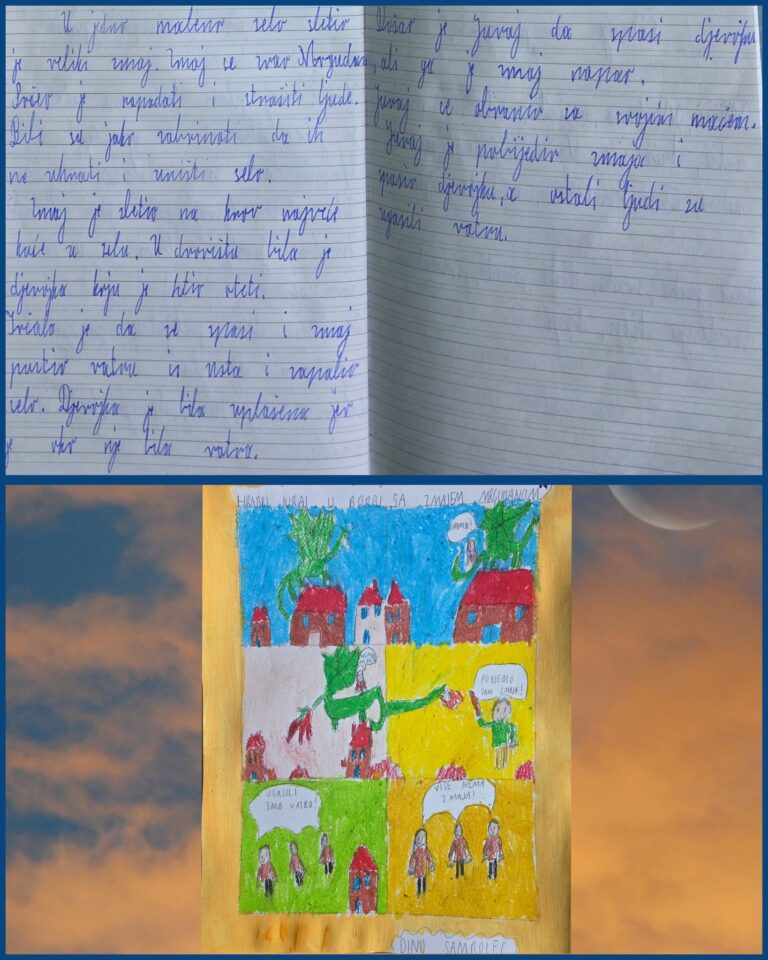 U jedno maleno selo sletio
je veliki zmaj. Zmaj se zvao Mrgudan.
Počeo je napadati i strašiti ljude.
Bili su jako zabrinuti da ih
ne uhvati i uništi selo.
Zmaj je sletio na krov najveće
kuće u selu. U dvorištu bila je
djevojka koju je htio oteti.
Trčala je da se spasi i zmaj
pustio vatru iz usta i zapalio
selo. Djevojka je bila uplašena jer
je oko nje bila vatra.
Došao je Juraj da spasi djevojku
, ali ga je zmaj napao.
Juraj se obranio sa svojim mačem.
Juraj je pobijedio zmaja i
našao djevojku, a ostali ljudi su
ugasili vatru.
HRABRI JURAJ U BORBI SA ZMAJEM MRGUDANOM
POBJEDIO
SAM ZMAJA!
UGASILI
SMO VATRU!
VIŠE NEMA
ZMAJA!
DINO SAMBOLEC